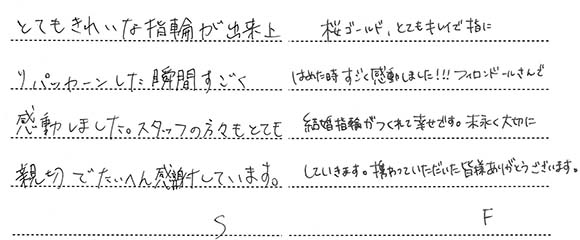 とてもきれいな指輪が出来上
りパッカーンした瞬間すごく
感動しました。スタッフの方々もとても
親切でたいへん感謝しています。
S
桜ゴールド、とてもキレイで指に
はめた時すごく感動しました!!!フィロンドールさんで
結婚指輪がつくれて幸せです。末永く大切に
していきます。携わっていただいた皆様ありがとうございます。
F